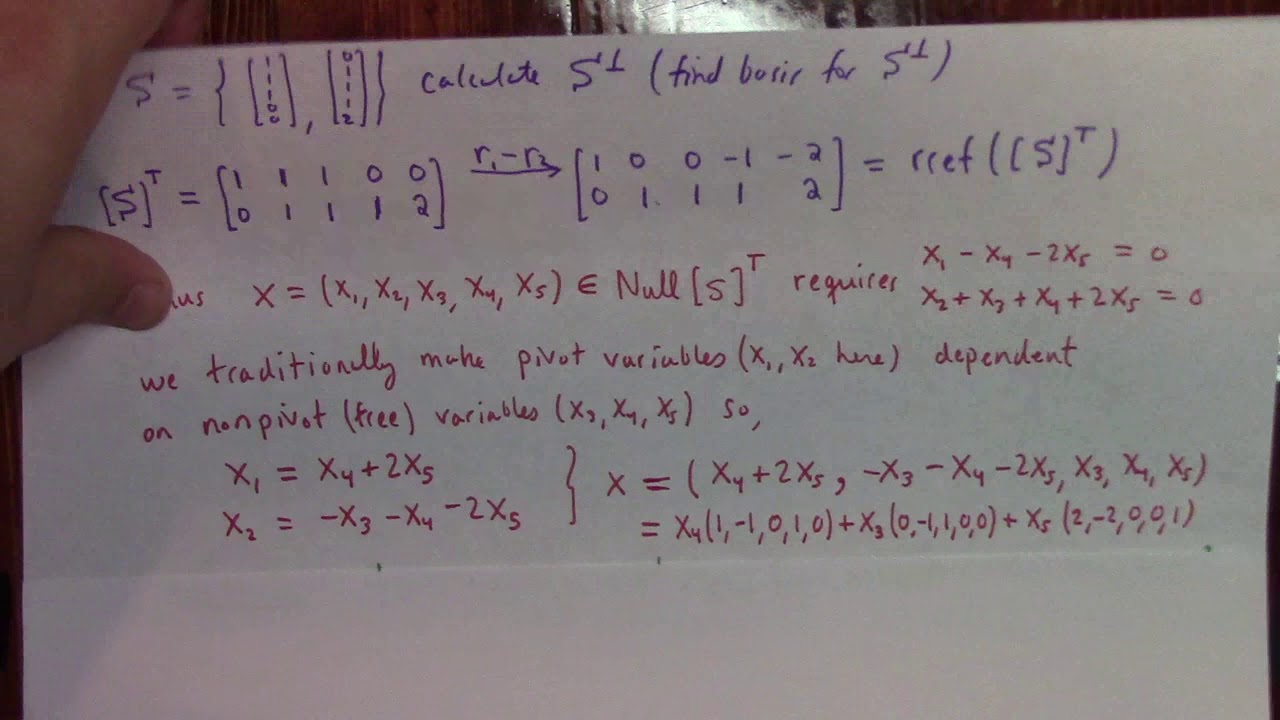 S = { [1 1 1 0 0], [0 1 1 1 2] } calculate S⊥ (find basis for S⊥)
[S]ᵀ = [1 1 1 0 0; 0 1 1 1 2] r₁-r₂→ [1 0 0 -1 -2; 0 1 1 1 2] = rref([S]ᵀ)
us x = (x₁, x₂, x₃, x₄, x₅) ∈ Null[S]ᵀ requires x₁ - x₄ - 2x₅ = 0
x₂ + x₃ + x₄ + 2x₅ = 0
we traditionally make pivot variables (x₁, x₂ here) dependent
on nonpivot (free) variables (x₃, x₄, x₅) so,
x₁ = x₄ + 2x₅
x₂ = -x₃ - x₄ - 2x₅ } x = (x₄ + 2x₅, -x₃ - x₄ - 2x₅, x₃, x₄, x₅)
= x₄(1,-1,0,1,0) + x₃(0,-1,1,0,0) + x₅(2,-2,0,0,1)